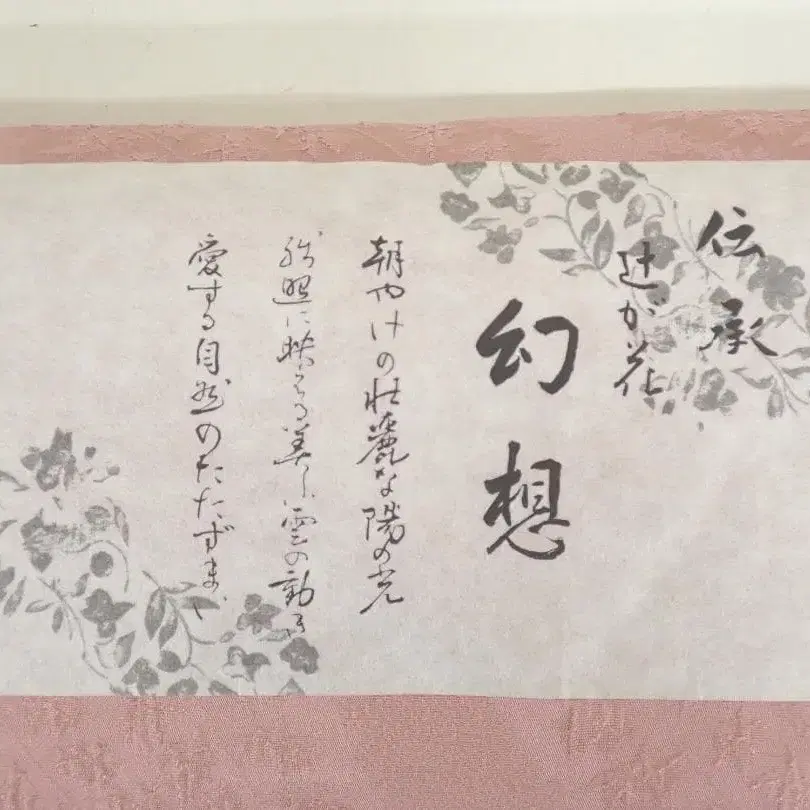 伝承
辻が花
幻想
朝やけの壮麗な陽の光
残照に映える美しい雲の動き
愛する自然のたたずまい